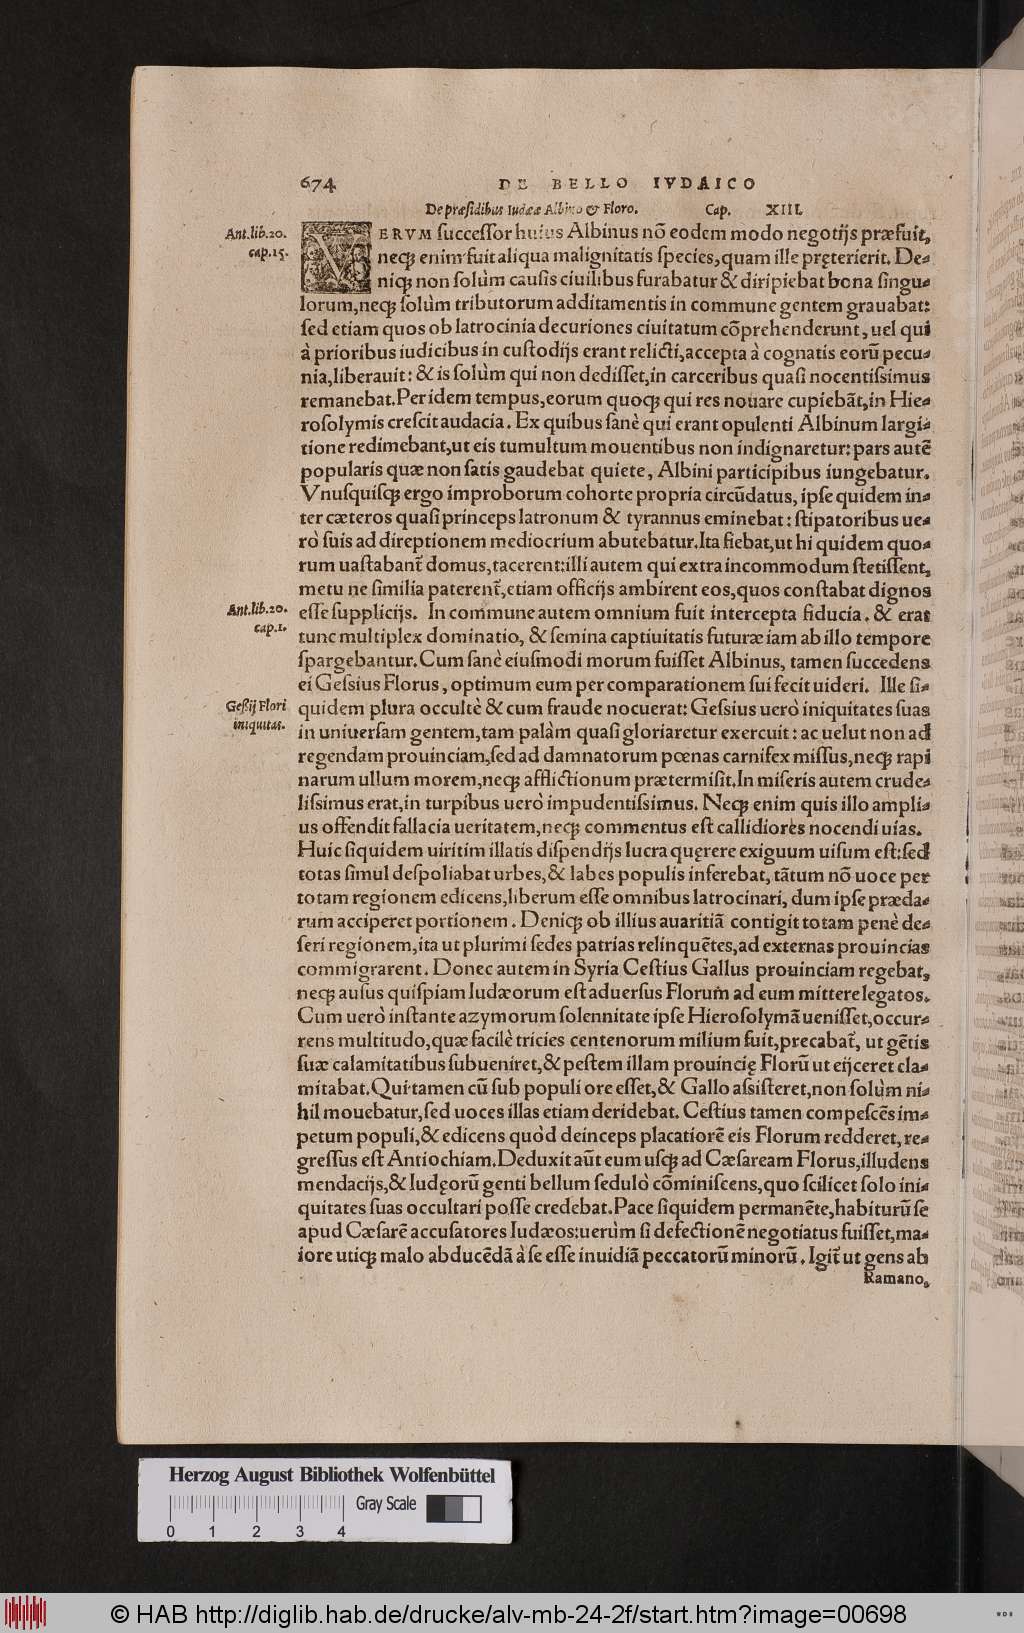 674 DE BELLO IVDAICO
De præsidibus Iudææ Albino & Floro. Cap. XIII.
Ant.lib.20.
cap.15.
VERVM successor huius Albinus nõ eodem modo negotijs præfuit,
neq; enim fuit aliqua malignitatis species, quam ille pręterierit. De-
niq; non solùm causis ciuilibus furabatur & diripiebat bona singu-
lorum, neq; solùm tributorum additamentis in commune gentem grauabat:
sed etiam quos ob latrocinia decuriones ciuitatum cõprehenderunt, uel qui
à prioribus iudicibus in custodijs erant relicti, accepta à cognatis eorũ pecu-
nia, liberauit: & is solùm qui non dedisset, in carceribus quasi nocentissimus
remanebat. Per idem tempus, eorum quoq; qui res nouare cupiebãt, in Hie-
rosolymis crescit audacia. Ex quibus sanè qui erant opulenti Albinum largi-
tione redimebant, ut eis tumultum mouentibus non indignaretur: pars autẽ
popularis quæ non satis gaudebat quiete, Albini participibus iungebatur.
Vnusquisq; ergo improborum cohorte propria circũdatus, ipse quidem in-
ter cæteros quasi princeps latronum & tyrannus eminebat: stipatoribus ue-
rò suis ad direptionem mediocrium abutebatur. Ita fiebat, ut hi quidem quo-
rum uastabant̃ domus, tacerent: illi autem qui extra incommodum stetissent,
metu ne similia paterent̃, etiam officijs ambirent eos, quos constabat dignos
Ant.lib.20.
cap.1.
esse supplicijs. In commune autem omnium fuit intercepta fiducia. & erat
tunc multiplex dominatio, & semina captiuitatis futuræ iam ab illo tempore
spargebantur. Cum sanè eiusmodi morum fuisset Albinus, tamen succedens
ei Gessius Florus, optimum eum per comparationem sui fecit uideri. Ille si-
Geßij Flori
iniquitas.
quidem plura occultè & cum fraude nocuerat: Gessius uerò iniquitates suas
in uniuersam gentem, tam palàm quasi gloriaretur exercuit: ac uelut non ad
regendam prouinciam, sed ad damnatorum pœnas carnifex missus, neq; rapi
narum ullum morem, neq; afflictionum prætermisit. In miseris autem crude-
lissimus erat, in turpibus uerò impudentissimus. Neq; enim quis illo ampli-
us offendit fallacia ueritatem, neq; commentus est callidiores nocendi uias.
Huic siquidem uiritim illatis dispendijs lucra quęrere exiguum uisum est: sed
totas simul despoliabat urbes, & labes populis inferebat, tãtum nõ uoce per
totam regionem edicens, liberum esse omnibus latrocinari, dum ipse præda-
rum acciperet portionem. Deniq; ob illius auaritiã contigit totam penè de-
seri regionem, ita ut plurimi sedes patrias relinquẽtes, ad externas prouincias
commigrarent. Donec autem in Syria Cestius Gallus prouinciam regebat,
neq; ausus quispiam Iudæorum est aduersus Florum ad eum mittere legatos.
Cum uerò instante azymorum solennitate ipse Hierosolymã uenisset, occur-
rens multitudo, quæ facilè tricies centenorum milium fuit, precabat̃, ut gẽtis
suæ calamitatibus subueniret, & pestem illam prouincię Florũ ut eijceret cla-
mitabat. Qui tamen cũ sub populi ore esset, & Gallo assisteret, non solùm ni-
hil mouebatur, sed uoces illas etiam deridebat. Cestius tamen compescẽs im-
petum populi, & edicens quòd deinceps placatiorẽ eis Florum redderet, re-
gressus est Antiochiam. Deduxit aũt eum usq; ad Cæsaream Florus, illudens
mendacijs, & Iudęorũ genti bellum sedulò cõminiscens, quo scilicet solo ini-
quitates suas occultari posse credebat. Pace siquidem permanẽte, habiturũ se
apud Cæsarẽ accusatores Iudæos: uerùm si defectionẽ negotiatus fuisset, ma-
iore utiq; malo abducẽdã à se esse inuidiã peccatorũ minorũ. Igit̃ ut gens ab
Ramano,
Herzog August Bibliothek Wolfenbüttel
Gray Scale
0 1 2 3 4
© HAB http://diglib.hab.de/drucke/alv-mb-24-2f/start.htm?image=00698